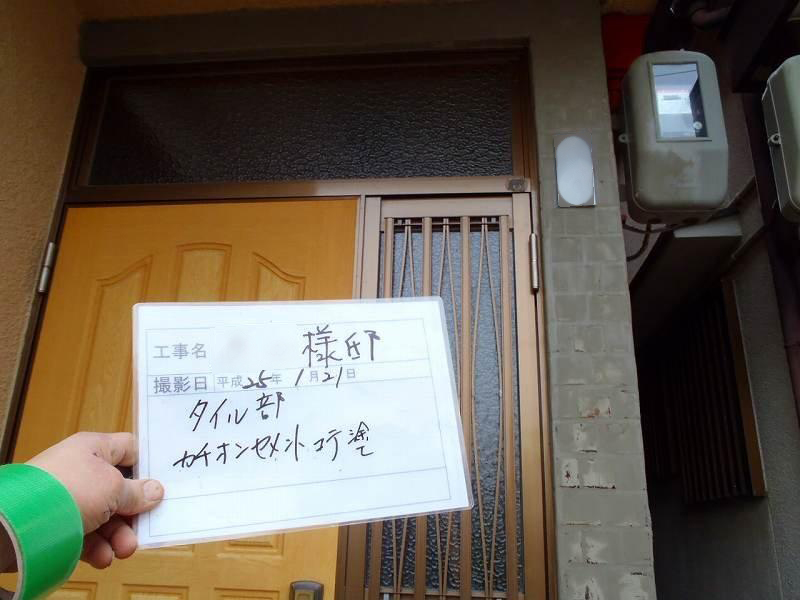 工事名 様邸
撮影日 平成25年1月21日
タイル部
カチオンセメントコテ塗